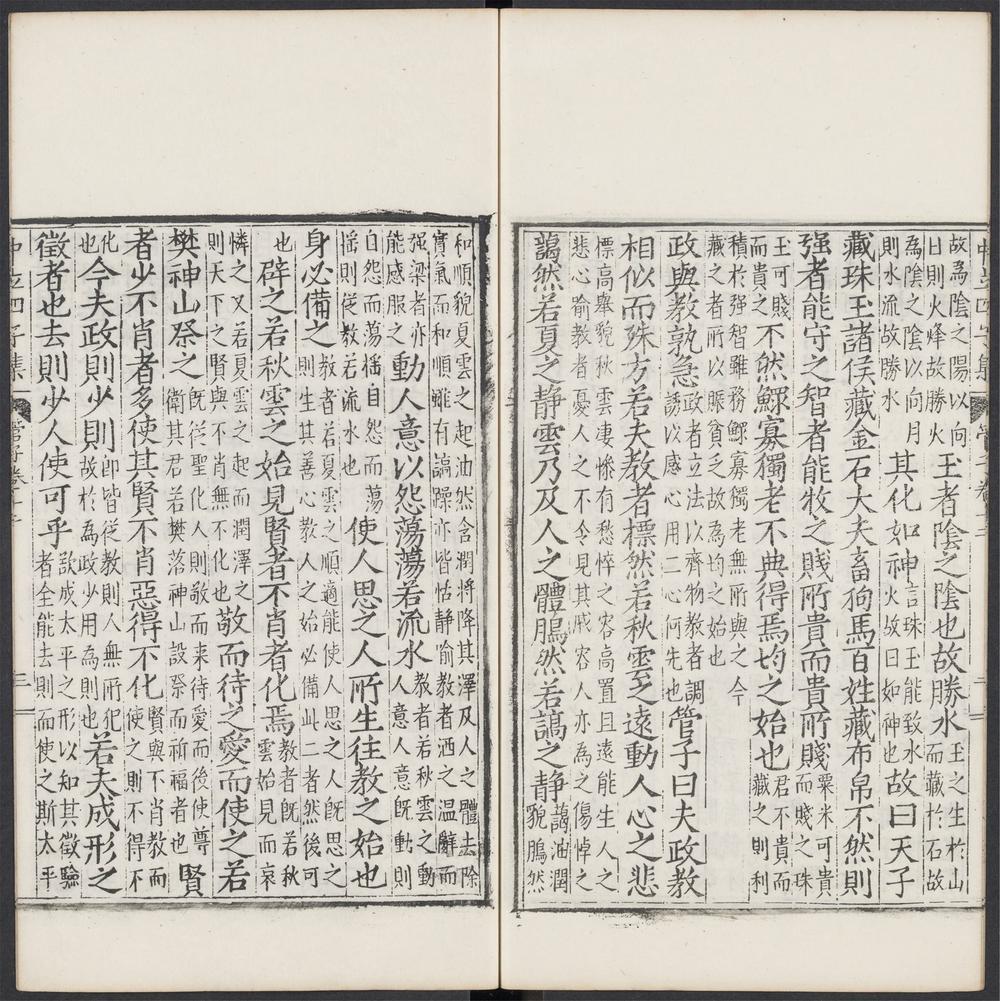 故爲陰之陽以向
日則火烽故勝火
爲陰之陰以向月
則水流故勝水
玉者陰之陰也故勝水
玉之生於山
而藏於石故
其化如神
言珠玉能致水
火故曰如神也
故曰天子
藏珠玉諸侯藏金石大夫畜狗馬百姓藏布帛不然則
强者能守之智者能牧之賤所貴而貴所賤
粟米可貴
而賤之珠
玉可賤
而貴之
不然鰥寡獨老不與得焉均之始也
君不貴而
藏之則利
積於强智雖務鰥寡獨老無所與之今
藏之者所以賑貧乏故爲均之始也
政與教孰急
政者立法以齊物教者調
誘以感心用二心何先也
管子曰夫政教
相似而殊方若夫教者標然若秋雲之遠動人心之悲
標高舉貌秋雲凄慘有愁悴之容高置且遠能生人之
悲心喻教者憂人之不令見其戚容人亦爲之傷悼之
藹然若夏之静雲乃及人之體鵰然若謞之静
藹油潤
貌鵰然
和順貌夏雲之起油然含潤將降其澤及人之體去除
實氣而和順雖有謞躁亦皆怗静喻教者洒之温辭而
强梁者亦
能感服之
動人意以怨蕩蕩若流水
教者若秋雲之動
人意人意既動則
自怨而蕩揺自怨而蕩
揺則從教若流水也
使人思之人所生往教之始也
身必備之
教者若夏雲之順適能使人思之人既思之
則生其善心教人之始必備此二者然後可
也
辟之若秋雲之始見賢者不肖者化焉
教者既若秋
雲始見而哀
憐之又若夏雲之起而潤澤之
則天下之賢與不肖無不化也
敬而待之愛而使之若
樊神山祭之
既從聖化人則敬而来待愛而後使尊
衛其君若樊落神山設祭而祈福者也
賢
者少不肖者多使其賢不肖惡得不化
賢與不肖教而
使之則不得不
化
也
今夫政則少則
即皆從教則人無所犯
故於爲政少用爲則也
若夫成形之
徵者也去則少人使可乎
欲成太平之形以知其徵驗
者全能去則而使之斯太平